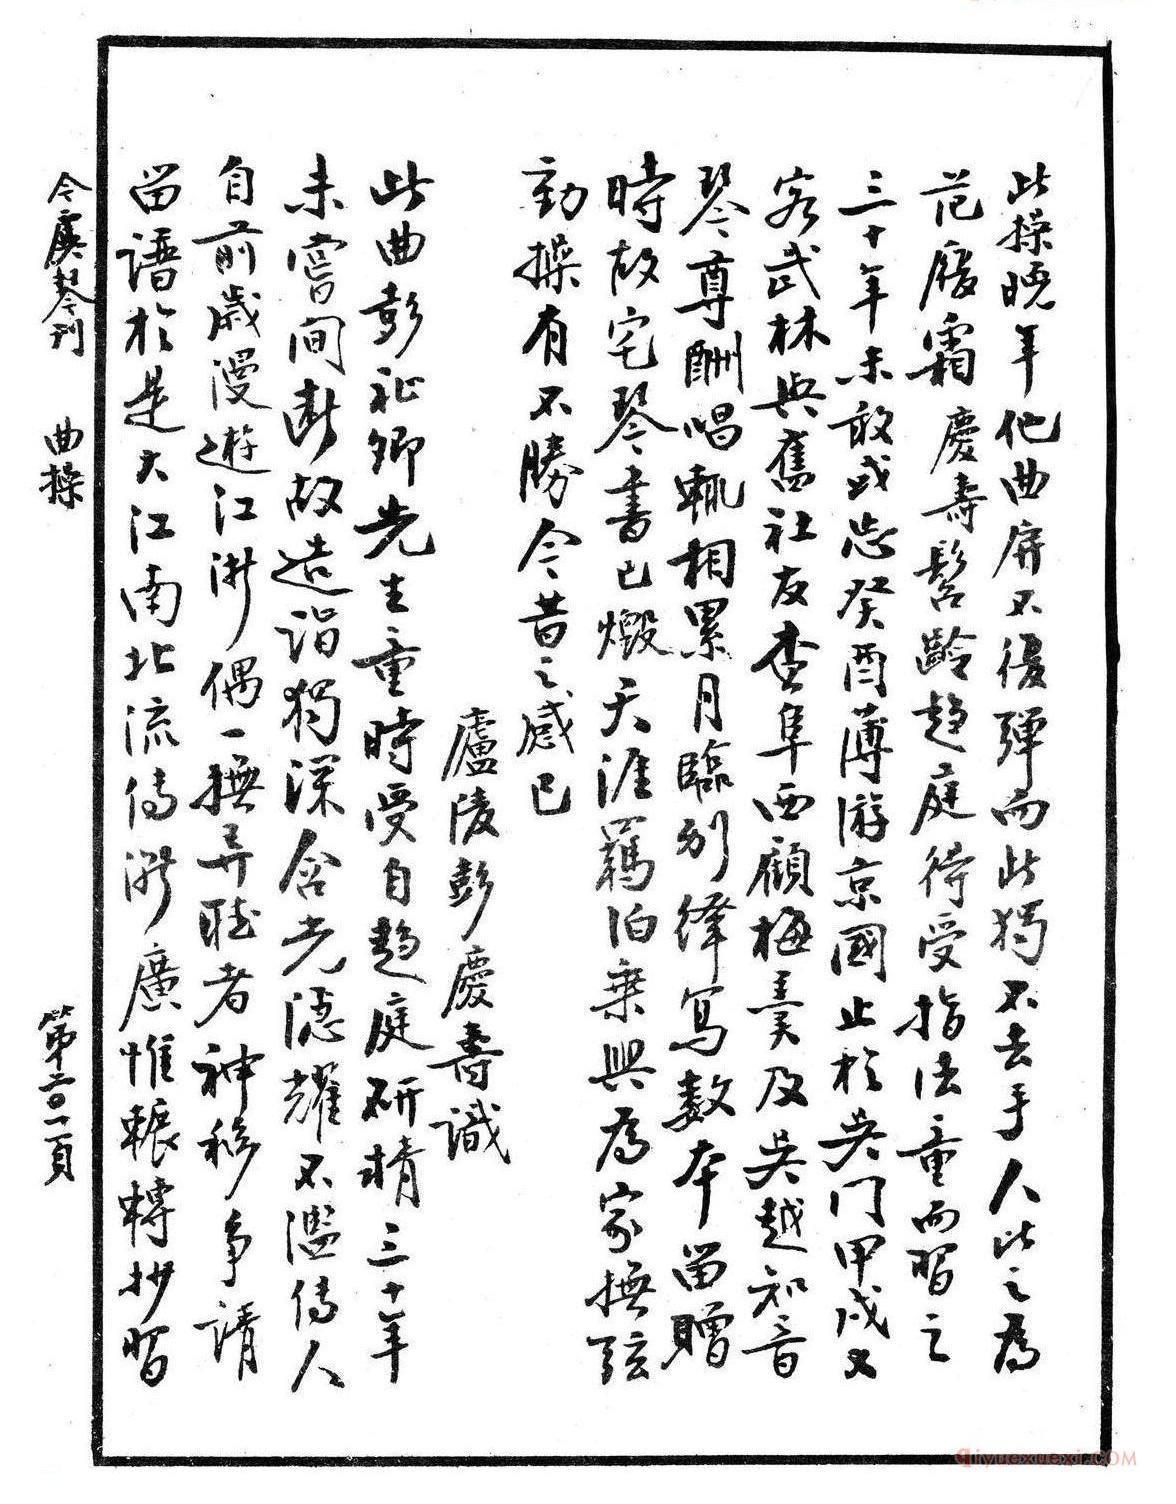 此操晚年他曲屏不復彈而此獨不去手人此之為
范履霜慶壽髫齡趨庭得受指法童而習之
三十年未敢或忘癸酉薄游京國止於吳門甲戌又
客武林與舊社友查阜西顧梅羹及吳越知音
琴尊酬唱輒相累月臨別繹寫數本留贈
時故宅琴書已燬天涯羈泊乘興為家撫弦
動操有不勝今昔之感已
廬陵彭慶壽識
此曲彭祉卿先生童時受自趨庭研精三十年
未嘗間斷故造詣獨深含光隱耀不濫傳人
自前歲漫遊江浙偶一撫弄聽者神移爭請
留譜於是大江南北流傳漸廣惟輾轉抄習
今虞琴刊 曲操 第二〇一頁
qiyuexuexi.COM